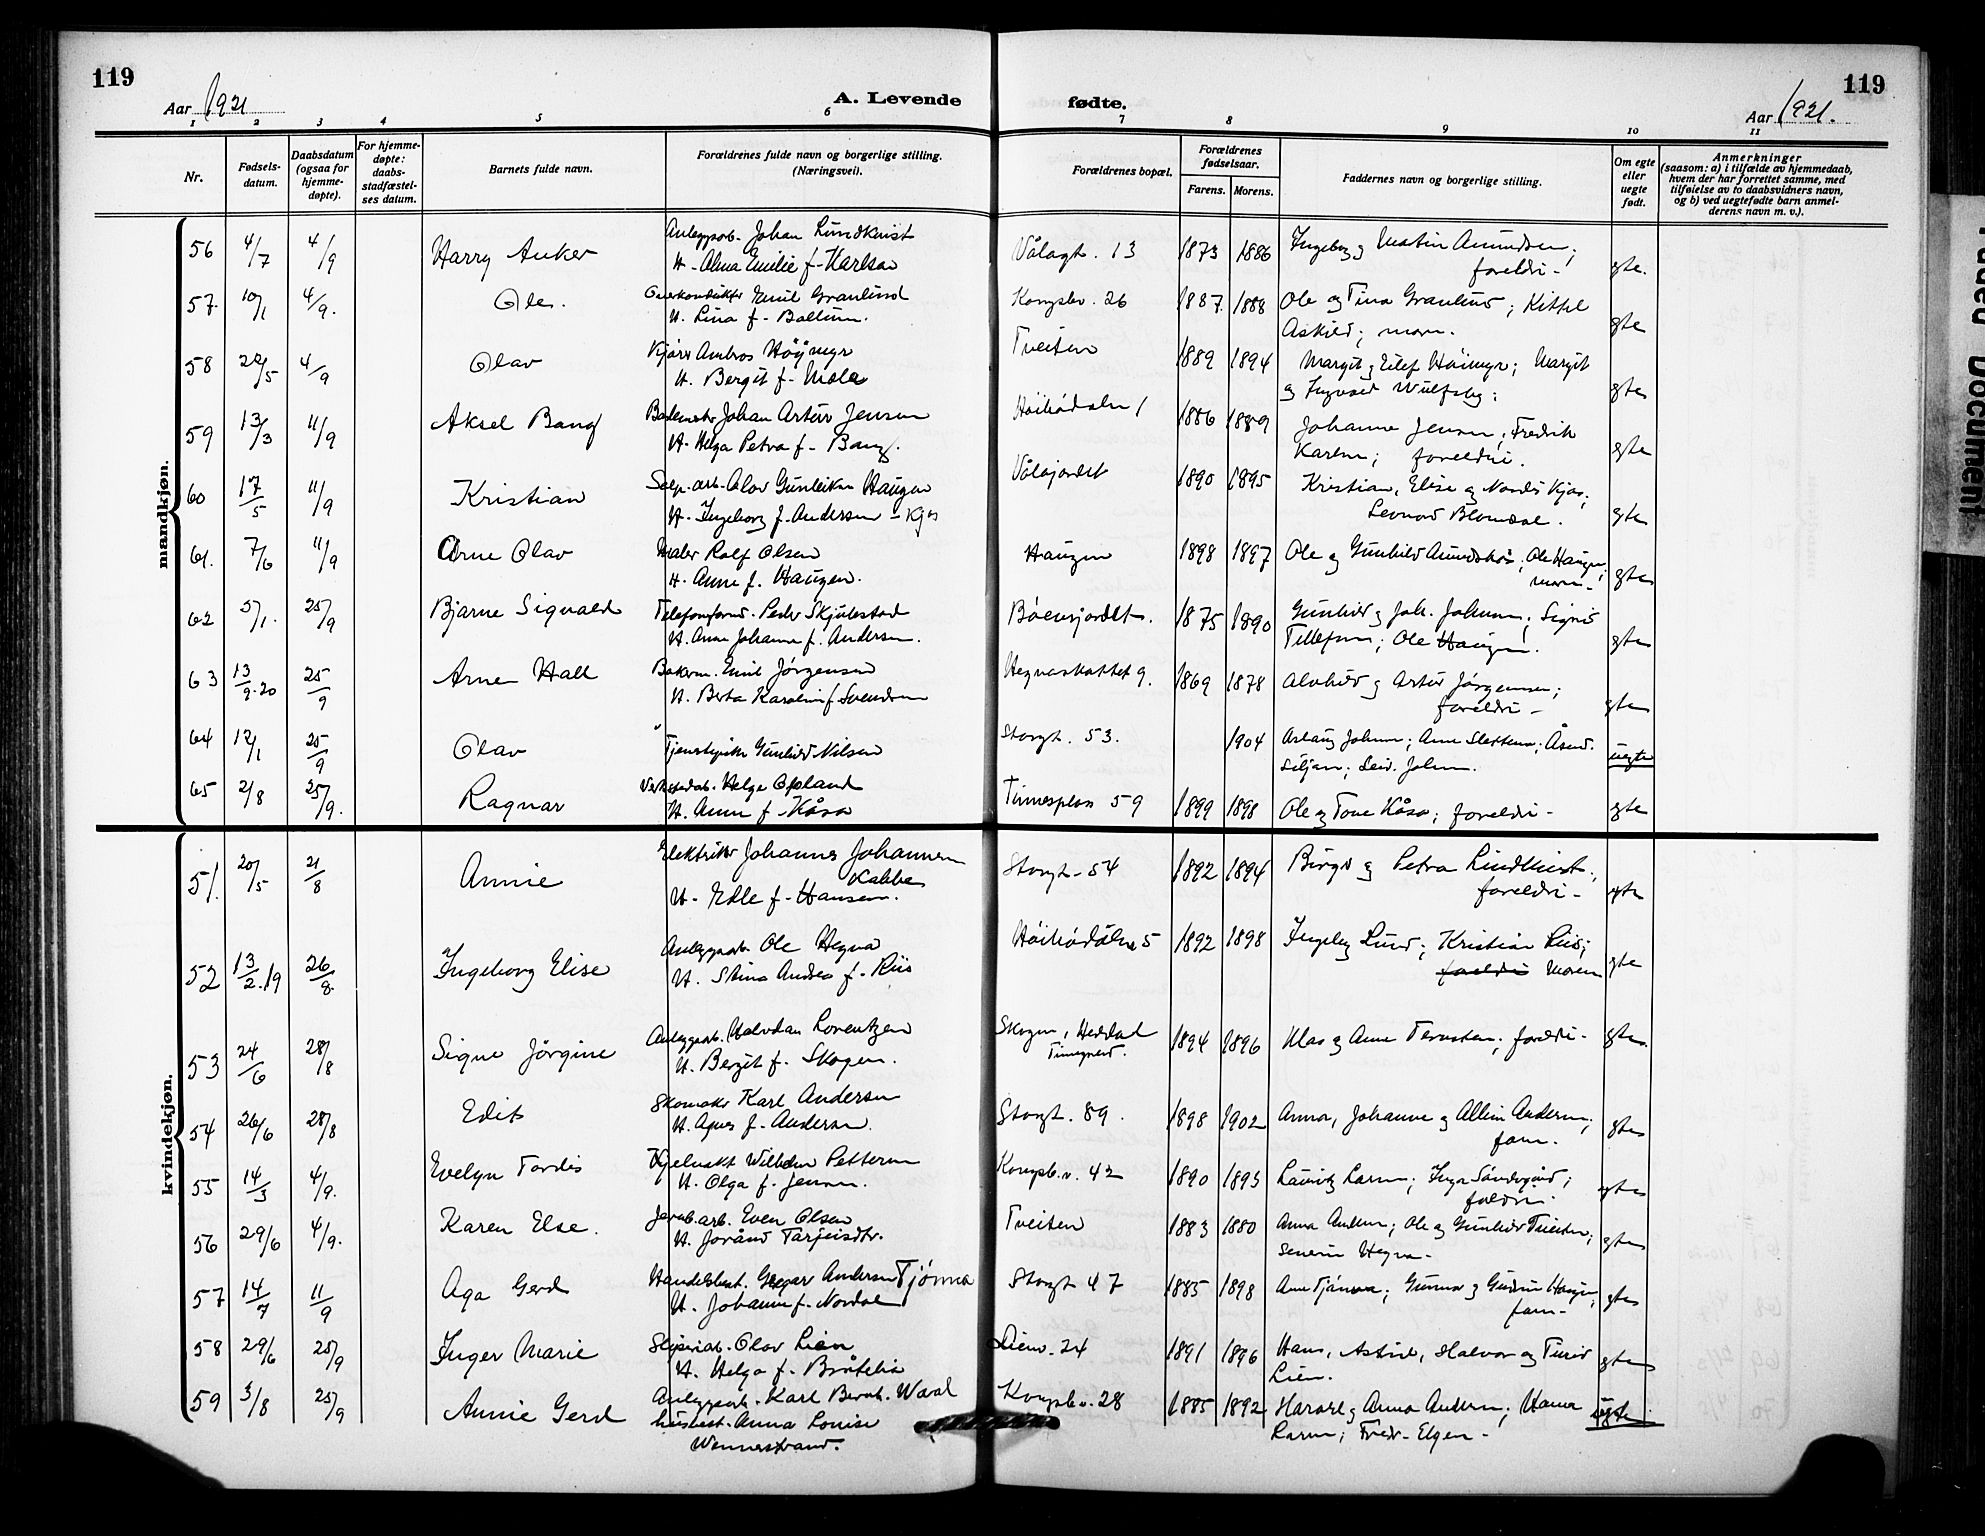 119
119
Aar 1921
A. Levende
fødte.
Aar 1921.
1 2 3 4 5 6 7 8 9 10 11
Nr.
Fødsels-
datum.
Daabsdatum
(ogsaa for
hjemme-
døpte).
For hjemme-
døpte:
daabs-
stadfæstel-
ses datum.
Barnets fulde navn.
Forældrenes fulde navn og borgerlige stilling.
(Næringsvei).
Forældrenes bopæl.
Forældrenes
fødselsaar.
Farens. Morens.
Faddernes navn og borgerlige stilling.
Om egte
eller
uegte
født.
Anmerkninger
(saasom: a) i tilfælde av hjemmedaab,
hvem der har forrettet samme, med
tilføielse av to daabsvidners navn,
og b) ved uegtefødte barn anmel-
derens navn m. v.).
mandkjøn.
56 4/7 4/9 Harry Anker Anleggsarb. Johan Lundkvist Vålagt. 13 1873 1886 Ingeborg Martin Amundsen;
H. Alma Emilie f. Karlson foreldri - egte.
57. 10/1 4/9. Ole. Overkonduktør Emil Granlund Kongsbv. 26 1887. 1888 Ole og Tina Granlund; Kittil
H. Lina f. Askild; moren. egte
58 20/5 4/9 Olav Ambros Höymyr Tveiten 1889 1894 Margit og Eilef Höimyr; Margit
H. Bergit f. Mole og Ingvald Wulfsby; egte
59 13/3 11/9 Aksel Bang Johan Artur Jensen 1886 1889 Johanne Jensen; Fredrik
H. Helga Petra f. Bang. Karlsen; foreldri. egte
60 17/5 11/9 Kristian Salp.arb. Olav Gunleiksen Haugen Vålajordet 1890 1895 Kristian, Elise og Kjos;
H. Ingeborg f. Andersen - Kjos Leonard Blomdal. egte
61. 7/6 11/9 Arne Olav Maler Rolf Olsen Haugen 1898 1897 Ole og Gunhild; Ole Haugen;
H. Anne f. Haugen. moren - egte
62 5/1. 25/9 Bjarne Sigvald Telefonform. Peder Skjulestad Bøensjordet. 1875 1890 Gunhild og Joh. Johnsen; Sigrid
H. Anne Johanne f. Andersen. Tellefsen; Ole Haugen. egte
63 13/9.20 25/9 Arne Hall Bakerm. Emil Jörgensen Hegnaskottet 9. 1869 1878 Alvhild og Artur Jörgensen;
H. Berta Karoline f. Svendsen foreldri - egte
64 12/1 25/9 Olav Tjenestepike Gunhild Nilsen Storgt. 53. 1904 Aslaug Johnsen; Anne Sletten; Åsmd.
Siljan; Leiv. Johnsen. uegte
65 2/8 25/9. Ragnar Verkstedarb. Helge Opland Tinnesplas 59 1899 1898 Ole og Tone Kåsa; foreldri - egte
H. Anne f. Kåsa
kvindekjøn.
51. 20/5 21/8 Annie Elektriker Johannes Johannesen Storgt. 54 1892 1894 Birger og Petra Lindkvist;
Kabbe foreldri - egte
H. Edle f. Hansen.
52 13/2.19 26/8 Ingeborg Elise Anleggsarb. Ole Hegna 5 1892 1898 Ingeborg Lund; Kristian Riis;
H. Stina Andrea f. Riis foreldri Moren egte
53 24/6 28/8 Signe Jörgine Anleggsarb. Halvdan Lorentzen Skogen, Heddal 1894 1896 Klas og Anne Ternsten; foreldri - egte
H. Bergit f. Skogen. Tinnegrend.
54 26/6 28/8 Edit Skomaker Karl Andersen Storgt. 89. 1898 1902 Anna, Johanne og Andersen;
H. Agnes f. Andersen. faren. egte
55 14/3 4/9. Evelyn Tordis Wilhelm Pettersen Kongsb.v. 42 1890 1893 Lauritz Larsen; Inga;
H. Olga f. Jensen. egte
56 29/6 4/9. Karen Else. Jernb.arb. Even Olsen Tveiten 1883 1880 Anna Andersen; Ole og Gunhild Tveiten;
H. Jorånd Tarjeisdtr. Severin Hegna - egte
57 14/7 11/9 Aga Gerd Handelsbest. Andersen Tjønna Storgt 47 1885 1898 Anne Tjönna; Gunnar og Gudrun Haugen,
H. Johanne f. Nordal faren - egte
58 29/6 25/9 Inger Marie Sliperiarb. Olav Lien Lienv. 24 1891 1896 Hans, Astrid, Halvor og Turid
H. Helga f. Bråtelie Lien. egte
59 3/8 25/9 Annie Gerd Anleggsarb. Karl Bernh. Waral Kongsb.v. 28 1885 1892 Harald og Anna Andersen; Hanna
Anna Louise Larsen; Fredr. Elgen - uegte
Wennerstrand.